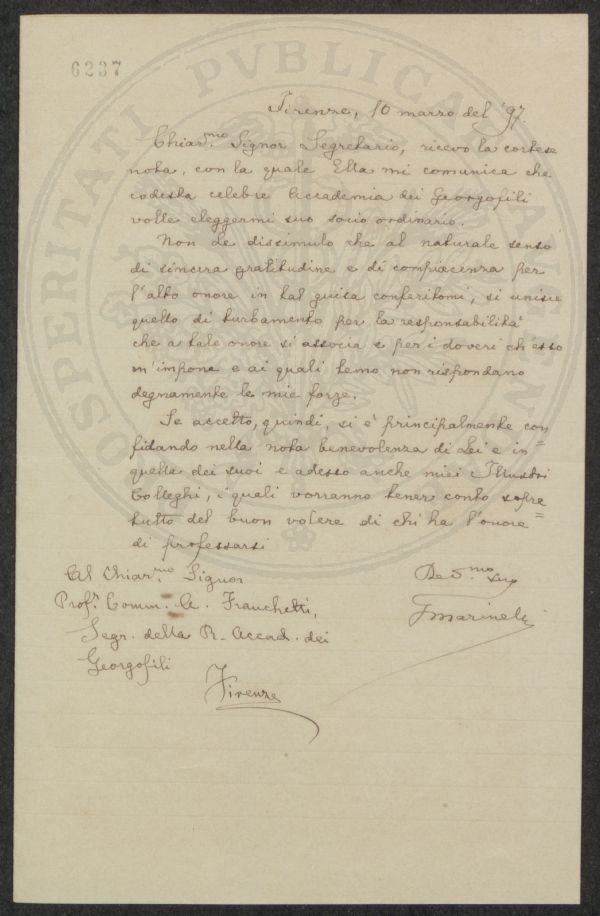 6237
PROSPERITATI PVBLICAE AVGENDAE
Firenze, 10 marzo del '97.
Chiar.mo Signor Segretario, ricevo la cortese
nota, con la quale Ella mi comunica che
codesta celebre Accademia dei Georgofili
volle eleggermi suo socio ordinario.
Non Le dissimulo che al naturale senso
di sincera gratitudine e di compiacenza per
l'alto onore in tal guisa conferitomi, si unisce
quello di turbamento per la responsabilità
che a tale onore si associa e per i doveri ch'esso
m'impone e ai quali temo non rispondano
degnamente le mie forze.
Se accetto, quindi, si è principalmente con
fidando nella nota benevolenza di Lei e in=
quella dei suoi e adesso anche miei Illustri
Colleghi, i quali vorranno tener conto sopra
tutto del buon volere di chi ha l'onore=
di professarsi
Dev.mo suo
FMarinelli
Al Chiar.mo Signor
Prof.r Comm. A. Franchetti,
Segr. della R. Accad. dei
Georgofili
Firenze